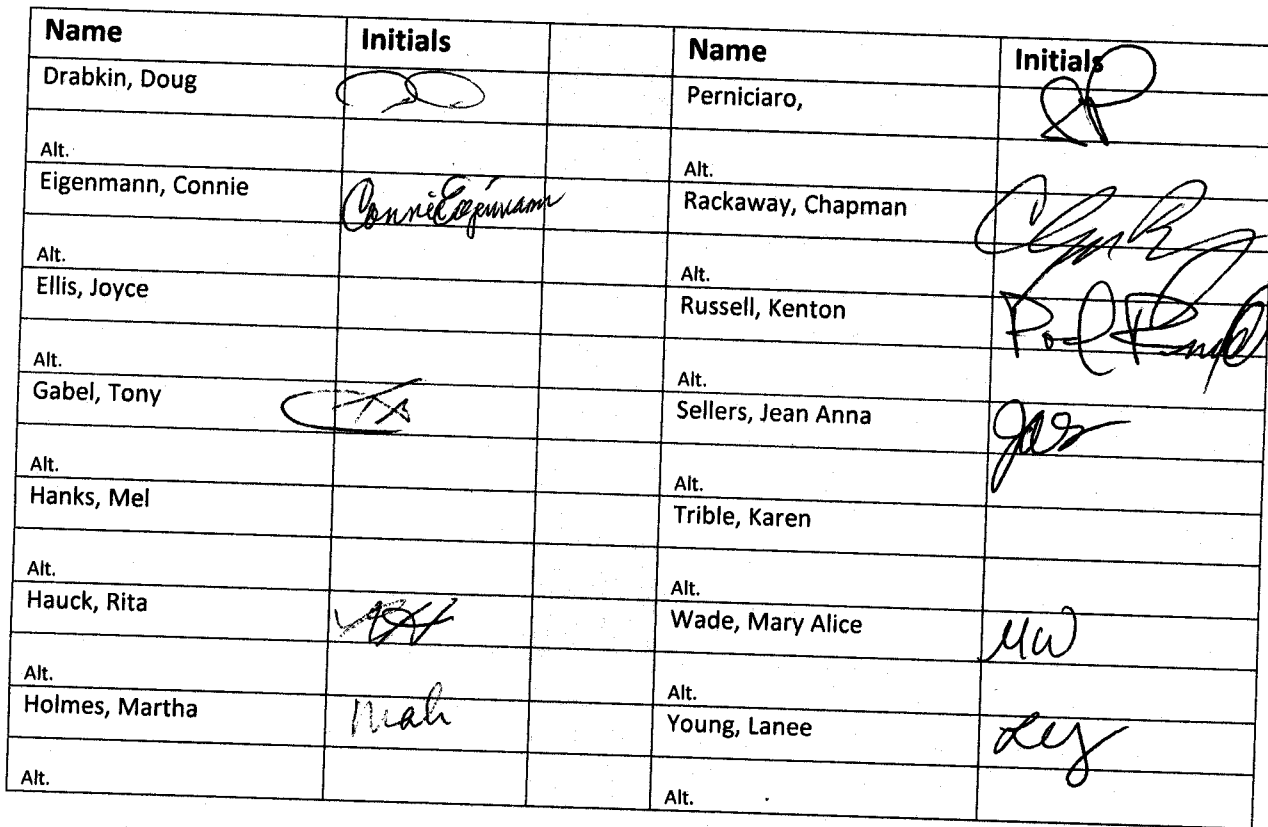 Name Initials Name Initials
Drabkin, Doug Perniciaro,
Alt. Alt.
Eigenmann, Connie Connie Eigenmann Rackaway, Chapman
Alt. Alt.
Ellis, Joyce Russell, Kenton
Alt. Alt.
Gabel, Tony Sellers, Jean Anna jas
Alt. Alt.
Hanks, Mel Trible, Karen
Alt. Alt.
Hauck, Rita Wade, Mary Alice MW
Alt. Alt.
Holmes, Martha mah Young, Lanee ley
Alt. Alt.